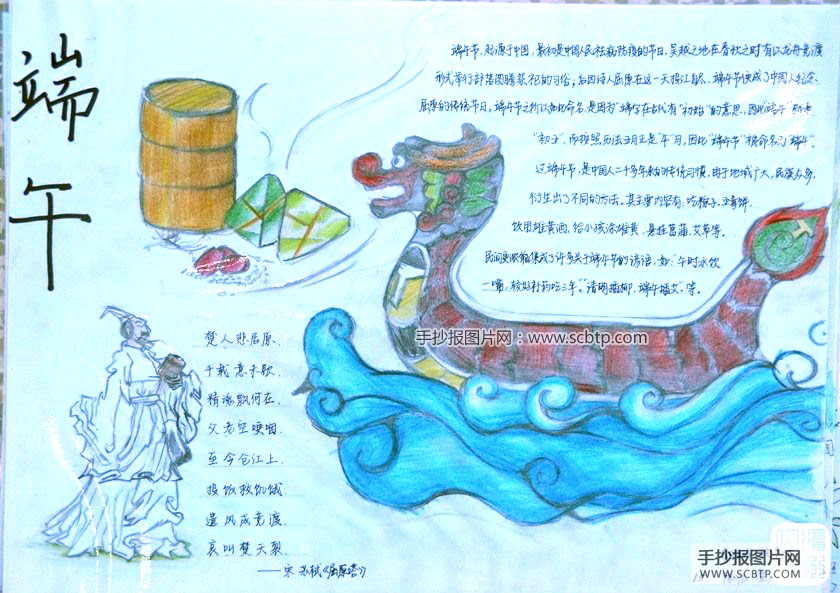 端午
端午节,起源于中国,最初是中国人民祛病防疫的节日,吴越之地在春秋之时有以龙舟竞渡
形式举行部落图腾祭祀的习俗;后因诗人屈原在这一天投江自尽,端午节便成了中国人纪念
屈原的传统节日,端午节之所以如此命名,是因为"端"字在古代有"初始"的意思,因此"端午"
"初五",而按照历法五月正是"午"月,因此"端午节"被命名为"端午"。
过端午节,是中国人二千多年来的传统习惯,由于地域广大,民族众多,
衍生出了不同的方法,其主要内容有:吃粽子,
饮用雄黄酒,给小孩涂雄黄,悬挂菖蒲,艾草等。
民间便成了许多关于端午节的谚语,如:"午时水饮
一嘴,较好补药吃三年。""清明插柳,端午插艾"等。
楚人悲屈原,
千载意未歇
精魂飘何在,
父老空哽咽
至今仓江上
投饭救饥饿
遗风成竞渡
哀叫楚天裂
——宋 苏轼《屈原塔》
手抄报图片网:www.scbtp.com
手抄报图片网
WWW.SCBTP.COM